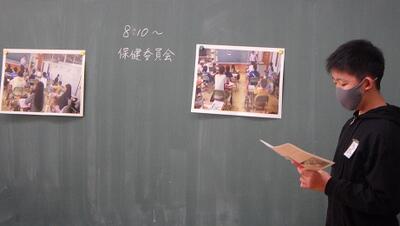 8:10～
保健委員会